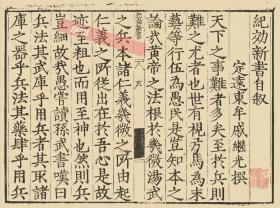 紀効新書自叙
定遠東牟戚繼光撰
天下之事難者多矣至於兵則
難之尤者也世有視弓馬為末
藝等行伍為愚民是豈知本之
論哉黄帝之法根於㡬微湯武
之兵本諸仁義㡬微之所由起
仁義之所從出在於吾心是故
迹亦粗也而用至神也然則兵
豈細故哉愚嘗讀孫武書嘆曰
兵法其武庫乎用兵者其取諸
庫之器乎兵法其藥肆乎用兵